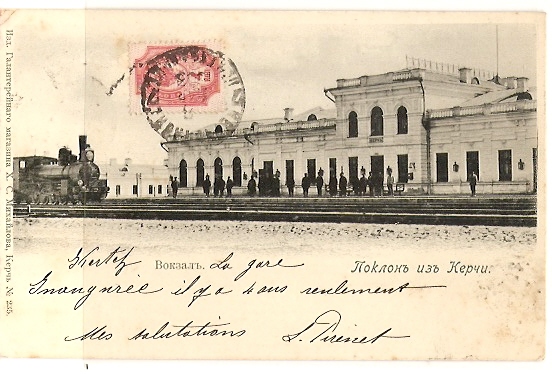 Изд. Галантерейнаго магазина Х. С. Михайлова, Керчь. № 235.
Kertch Вокзалъ. La gare Поклонъ изъ Керчи.
Inaugurée il y a 4 ans seulement
Mes salutations